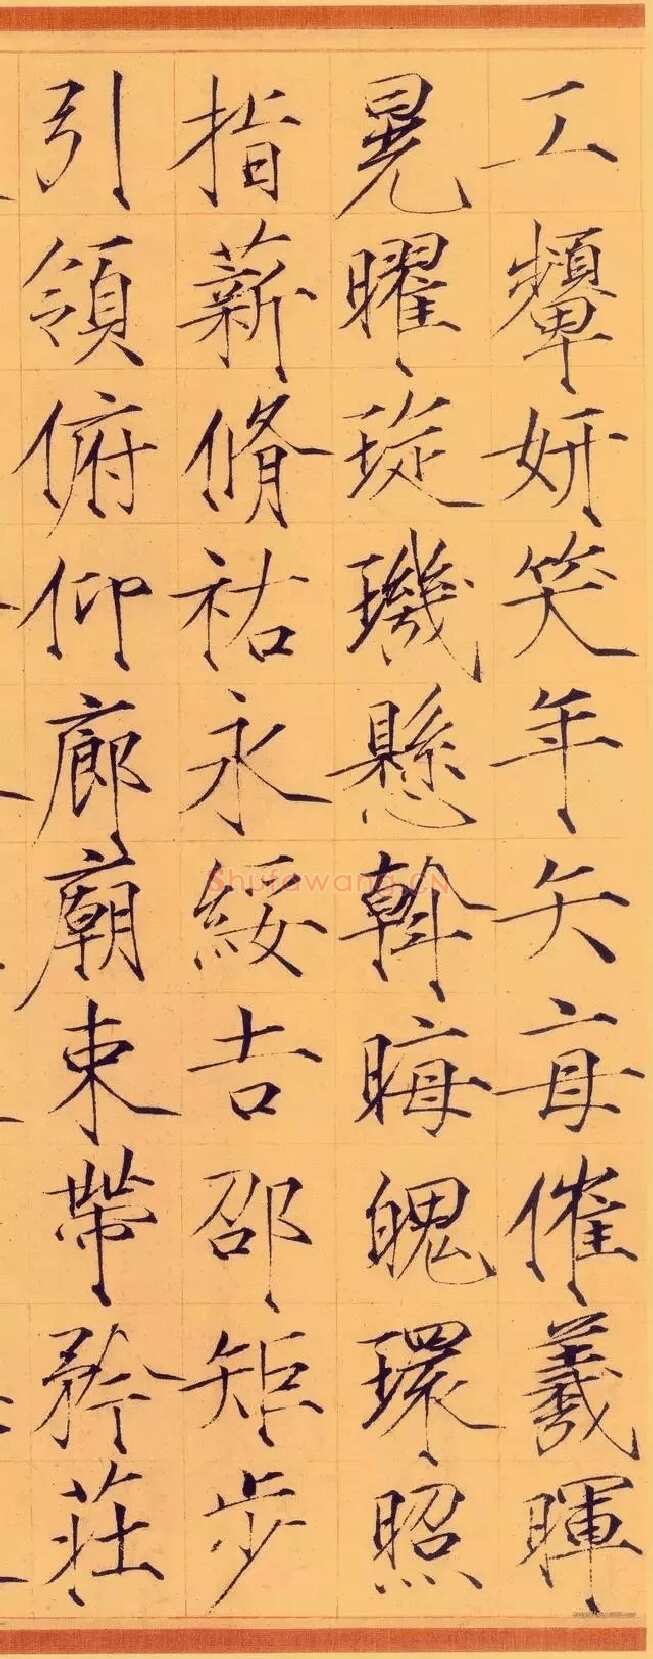 工顰妍笑年矢每催羲暉
晃曜琁璣懸斡晦魄環照
指薪脩祜永綏吉邵矩步
引領俯仰廊廟束帶矜莊
Shufawang.CN